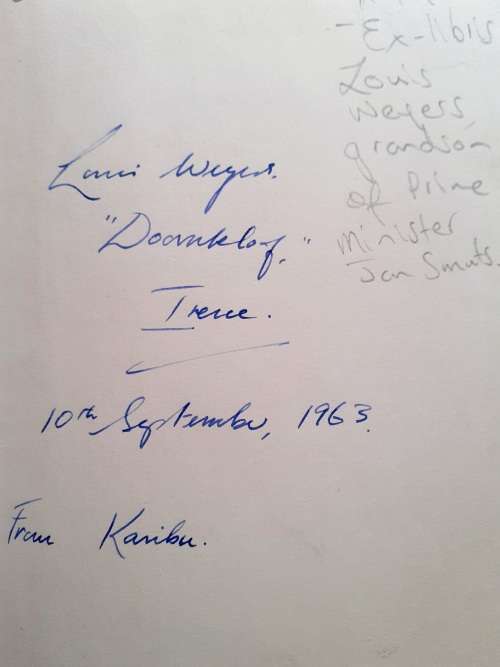 - Ex-libris
Louis
Weyers,
grandson
of Prime
Minister
Jan Smuts.
Louis Weyers.
"Doornkloof."
Irene.
10th September, 1963.
From Karibu.